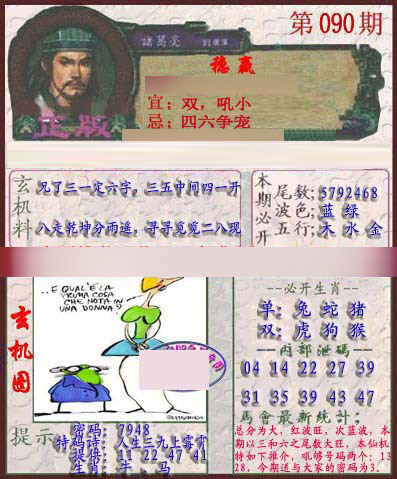 第090期
諸葛亮
穩赢
宜：双，吼小
忌：四六争宠
正版
玄机料
兄了三一定六字，三五中间四一开
八走乾坤分雨遥，寻寻觅觅二八现
本期必开
尾数：5792468
波色：蓝 绿
五行：木 水 金
玄机图
..E QUAL'È LA
PRIMA COSA
CHE NOTA IN
UNA DONNA?
必开生肖
单：兔 蛇 猪
双：虎 狗 猴
内部泄码
04 14 22 27 39
31 35 39 43 47
馬會最新统计：
总分为大，红波旺，次蓝波，本
期以三和六之尾数大旺，本仙机
特如下推介，吼够号码两个：13
28，今期送与大家的密码为3.
提示
密码：7948
特码诗：人生三九上霉霄
提供：11 22 47 41
生肖：牛、马